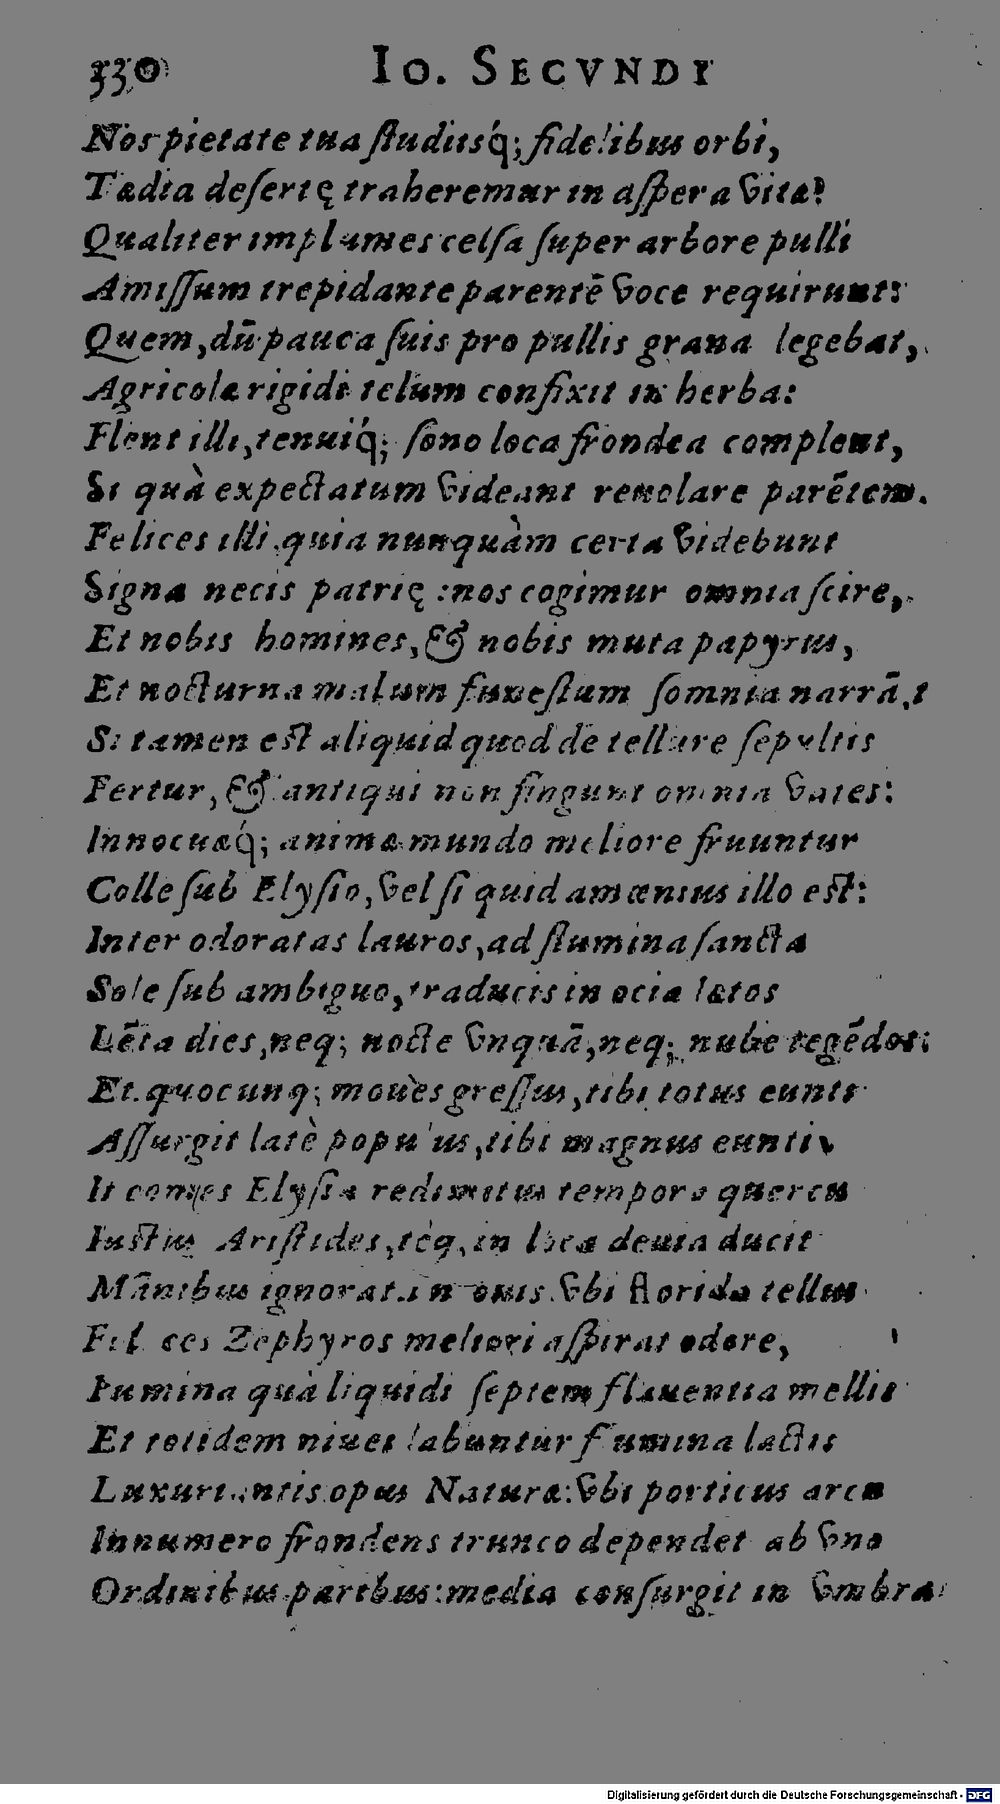 330 IO. SECVNDI
Nos pietate tua studiisq́; fidelibus orbi,
Tædia desertę traheremur in aspera vitæ?
Qualiter implumes celsa super arbore pulli
Amissum trepidante parentē voce requirunt:
Quem, dū pauca suis pro pullis grana legebat,
Agricolæ rigidi telum confixit in herba:
Flent illi, tenuiq́; sono loca frondea complent,
Si quà expectatum videant reuolare parētem.
Felices illi, quia nunquàm certa videbunt
Signa necis patrię: nos cogimur omnia scire,
Et nobis homines, & nobis muta papyrus,
Et nocturna malum funestum somnia narrā,t
Si tamen est aliquid quod de tellure sepultis
Fertur, & antiqui non fingunt omnia vates:
Innocuæq́; animæ mundo meliore fruuntur
Colle sub Elysio, vel si quid amœnius illo est:
Inter odoratas lauros, ad flumina sancta
Sole sub ambiguo, traducis in ocia lætos
Lēta dies, neq; nocte vnquā, neq; nube tegēdos:
Et quocunq; moues gressus, tibi totus eunti
Assurgit latè populus, tibi magnus eunti
It comes Elysia redimitus tempora quercu
Iustus Aristides, téq, in loca deuia ducit
Mānibus ignorat in ouis. vbi florida tellus
Felices Zephyros meliori aspirat odore,
Fumina quà liquidi septem flauentia mellis
Et totidem niuei labuntur flumina lactis
Luxuriantis opus Naturæ: vbi porticus arcu
Innumero frondens trunco dependet ab vno
Ordinibus paribus: media consurgit in vmbra
Digitalisierung gefördert durch die Deutsche Forschungsgemeinschaft - DFG